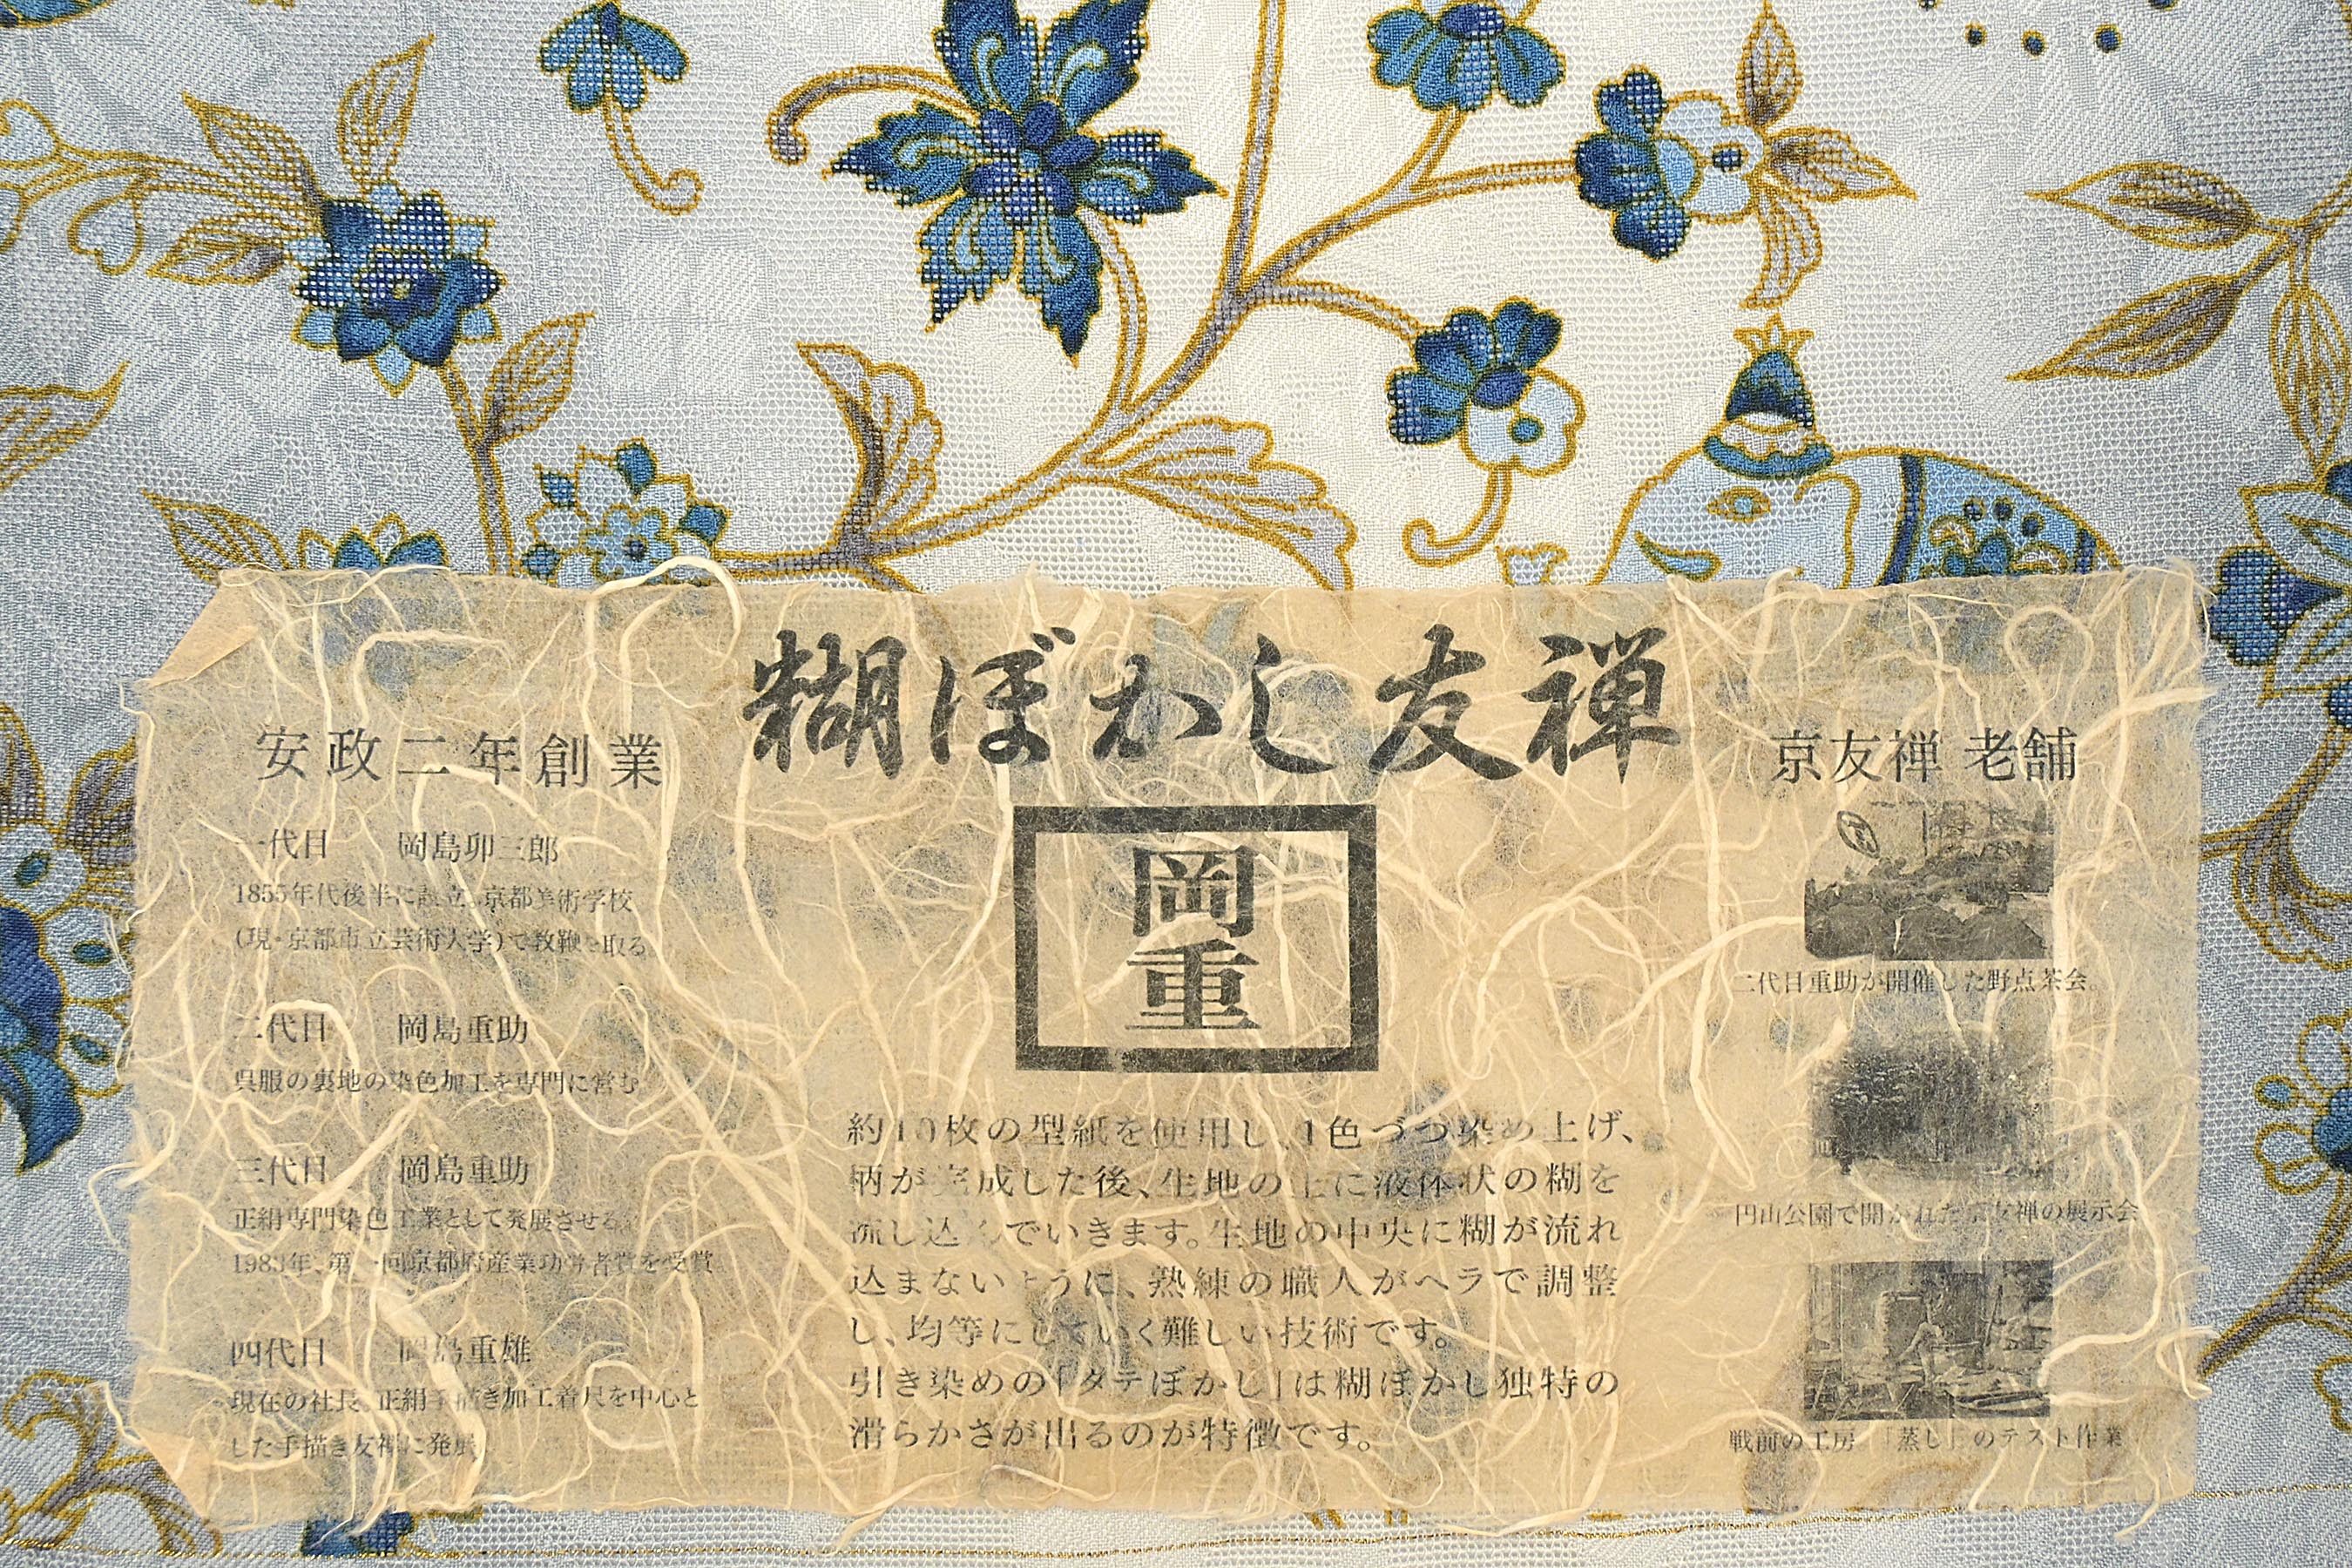 糊ぼかし友禅
安政二年創業
一代目 岡島卯三郎
1855年代後半に設立。京都美術学校
(現・京都市立芸術大学)で教鞭を取る
二代目 岡島重助
呉服の裏地の染色加工を専門に営む
三代目 岡島重助
正絹専門染色工業として発展させる。
1983年、第一回京都府産業功労者賞を受賞
四代目 岡島重雄
現在の社長。正絹手描き加工着尺を中心と
した手描き友禅に発展
岡
重
約10枚の型紙を使用し、1色づつ染め上げ、
柄が完成した後、生地の上に液体状の糊を
流し込んでいきます。生地の中央に糊が流れ
込まないように、熟練の職人がヘラで調整
し、均等にしていく難しい技術です。
引き染めの「タテぼかし」は糊ぼかし独特の
滑らかさが出るのが特徴です。
京友禅 老舗
二代目重助が開催した野点茶会。
円山公園で開かれた京友禅の展示会
戦前の工房 「蒸し」のテスト作業